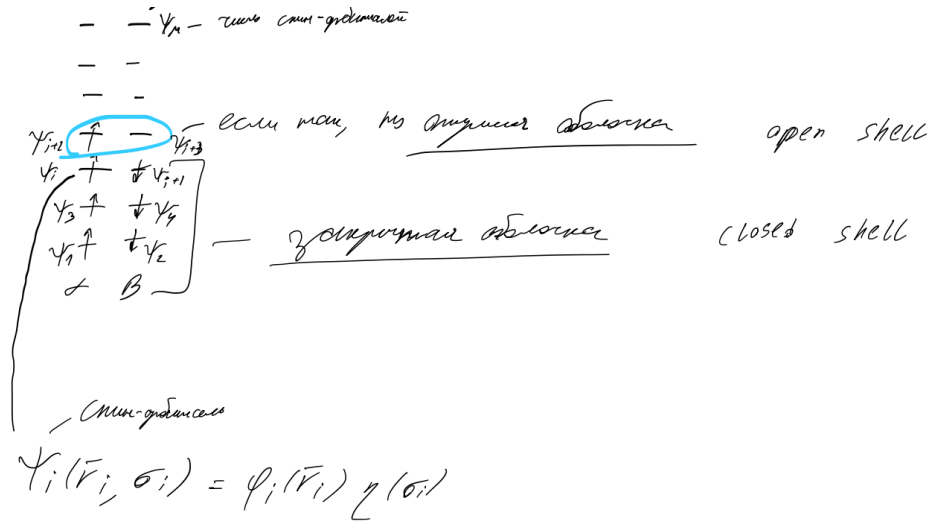 ψ_M – число спин-орбиталей
ψ_{i+2} ψ_{i+3} – если так, то открытая оболочка open shell
ψ_i ψ_{i+1}
ψ_3 ψ_4
ψ_1 ψ_2 – закрытая оболочка closed shell
α β
спин-орбиталь
ψ_i(r̄_i, σ_i) = φ_i(r̄_i) η(σ_i)